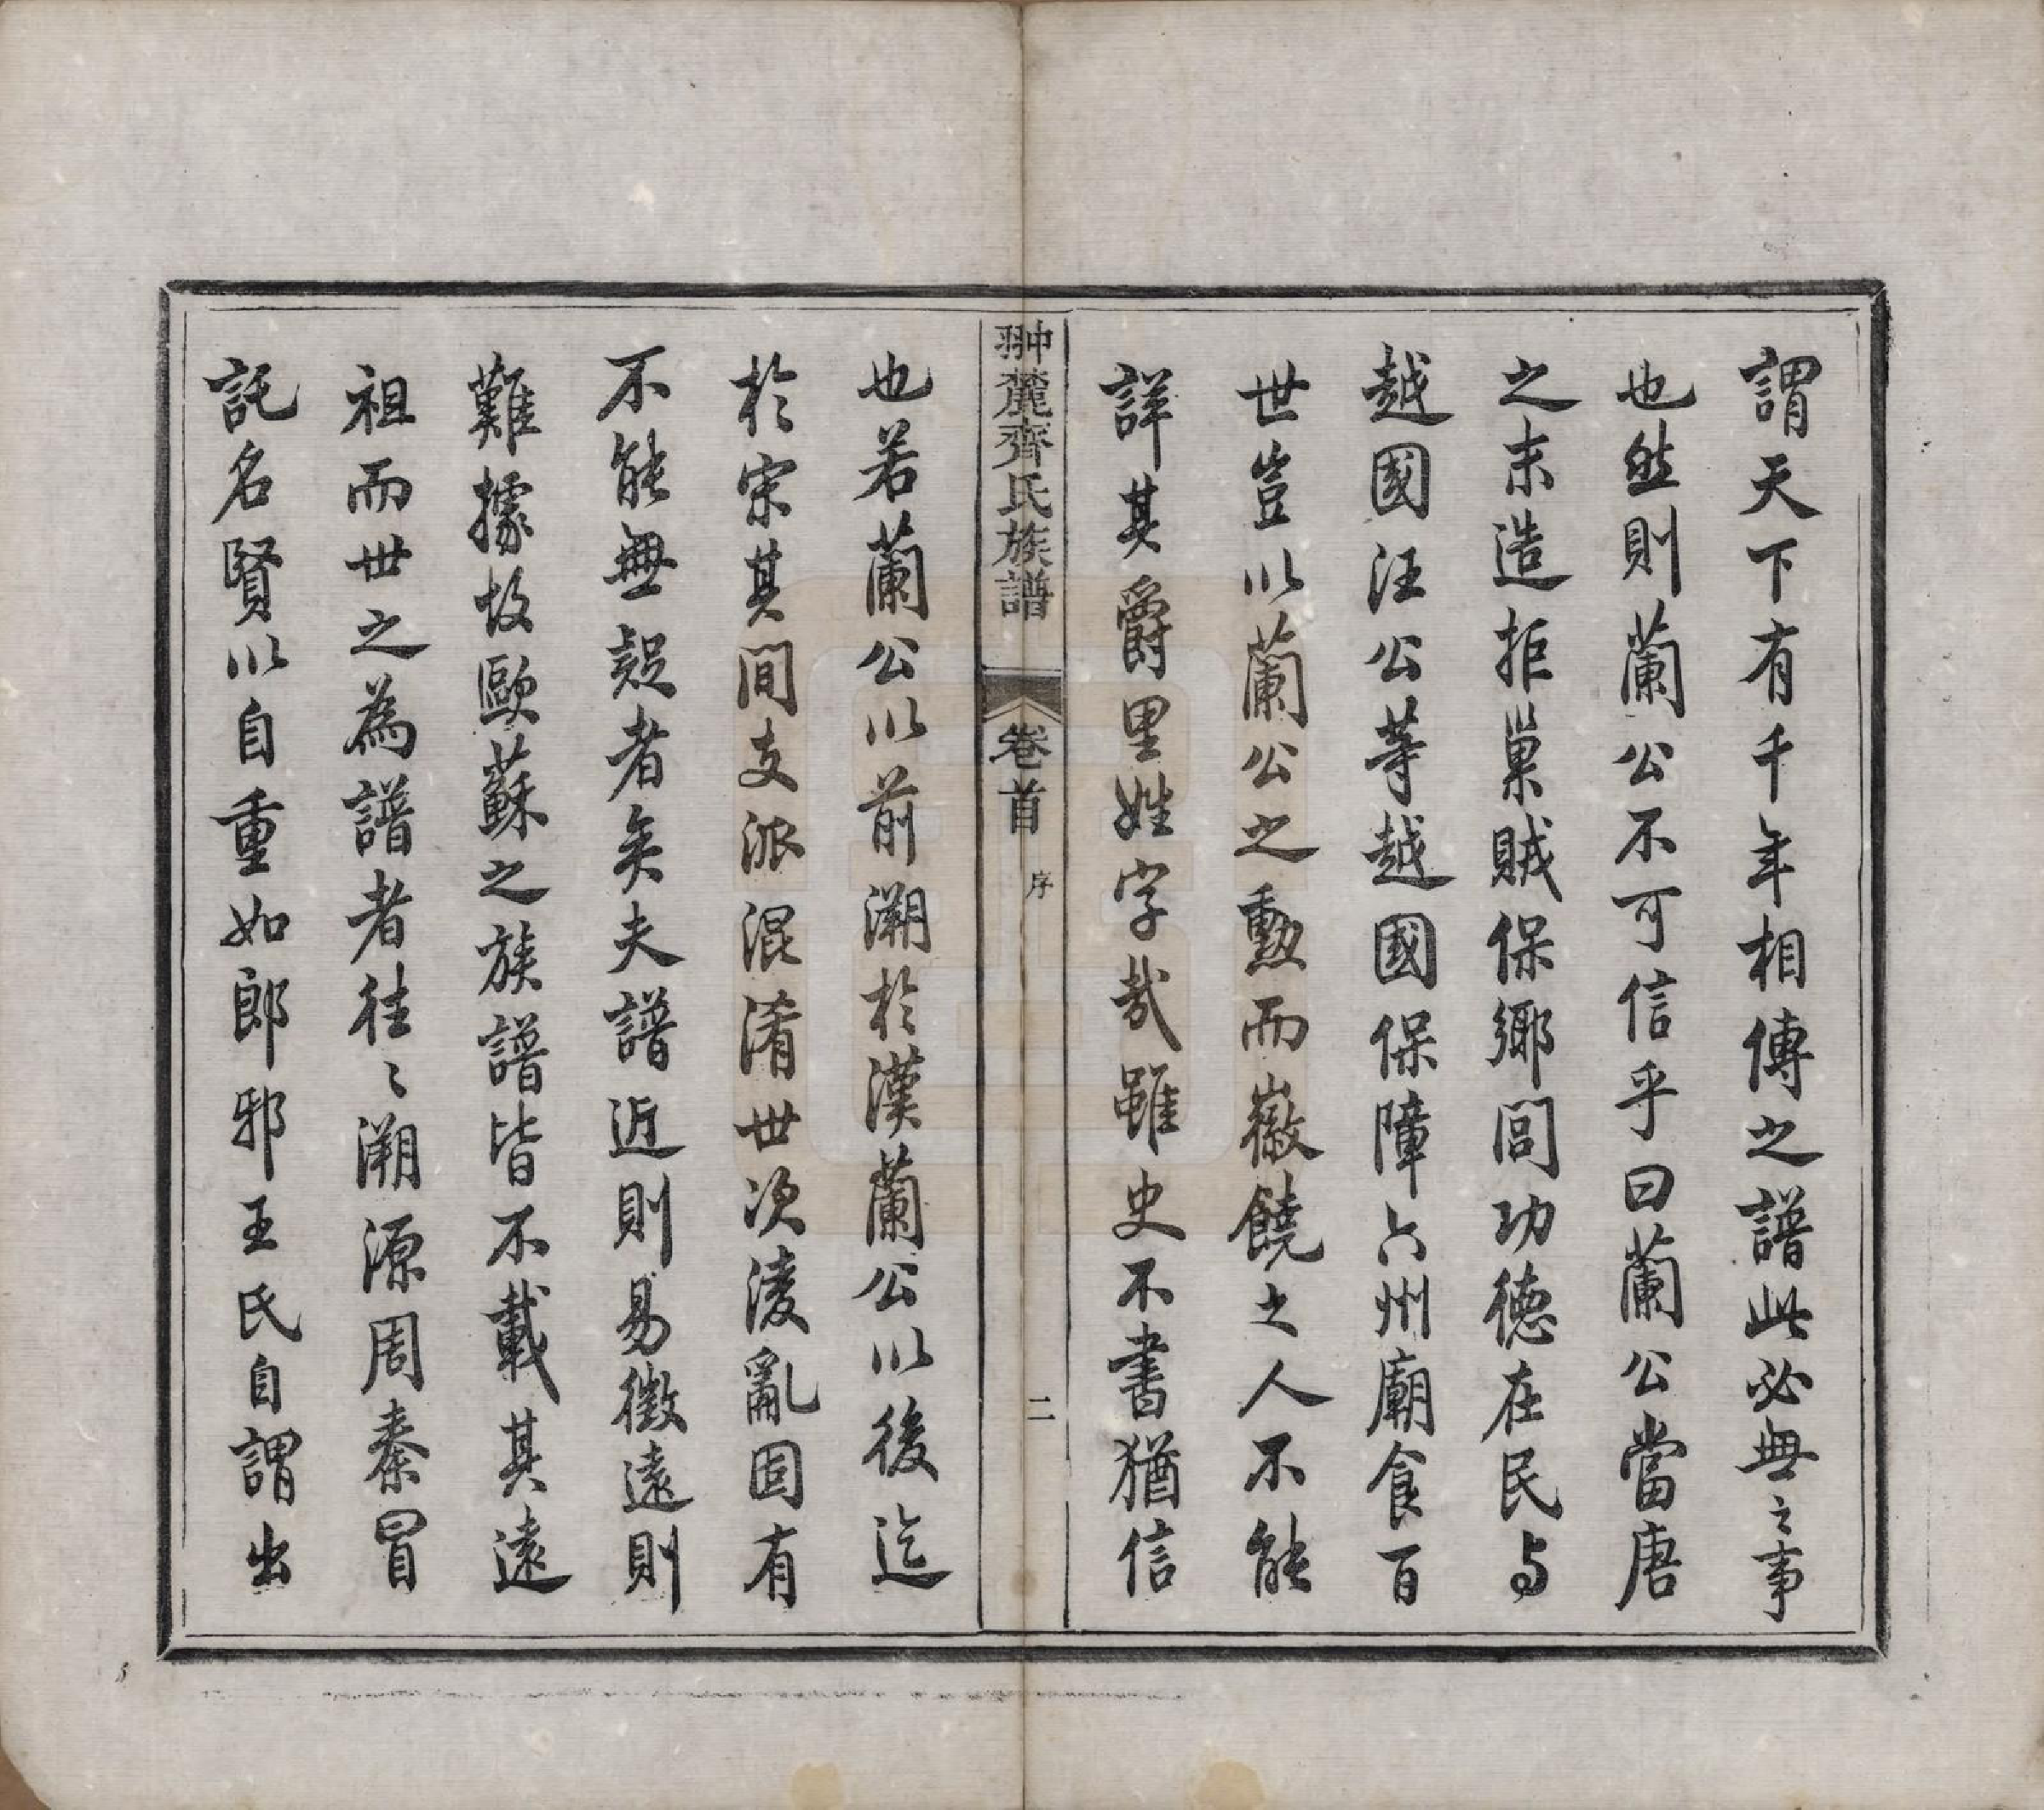 謂天下有千年相傳之譜此必無之事
也然則蘭公不可信乎曰蘭公當唐
之末造拒巢賊保鄉閭功德在民与
越國汪公等越國保障六州廟食百
世豈以蘭公之勳而徽饒之人不能
詳其爵里姓字哉雖史不書猶信
翀麓齊氏族譜 卷首 序 二
也若蘭公以前溯於漢蘭公以後迄
於宋其間支派混淆世次淩亂固有
不能無疑者矣夫譜近則易徵遠則
難據故歐蘇之族譜皆不載其遠
祖而世之為譜者往〻溯源周秦冒
託名賢以自重如郎邪王氏自謂出